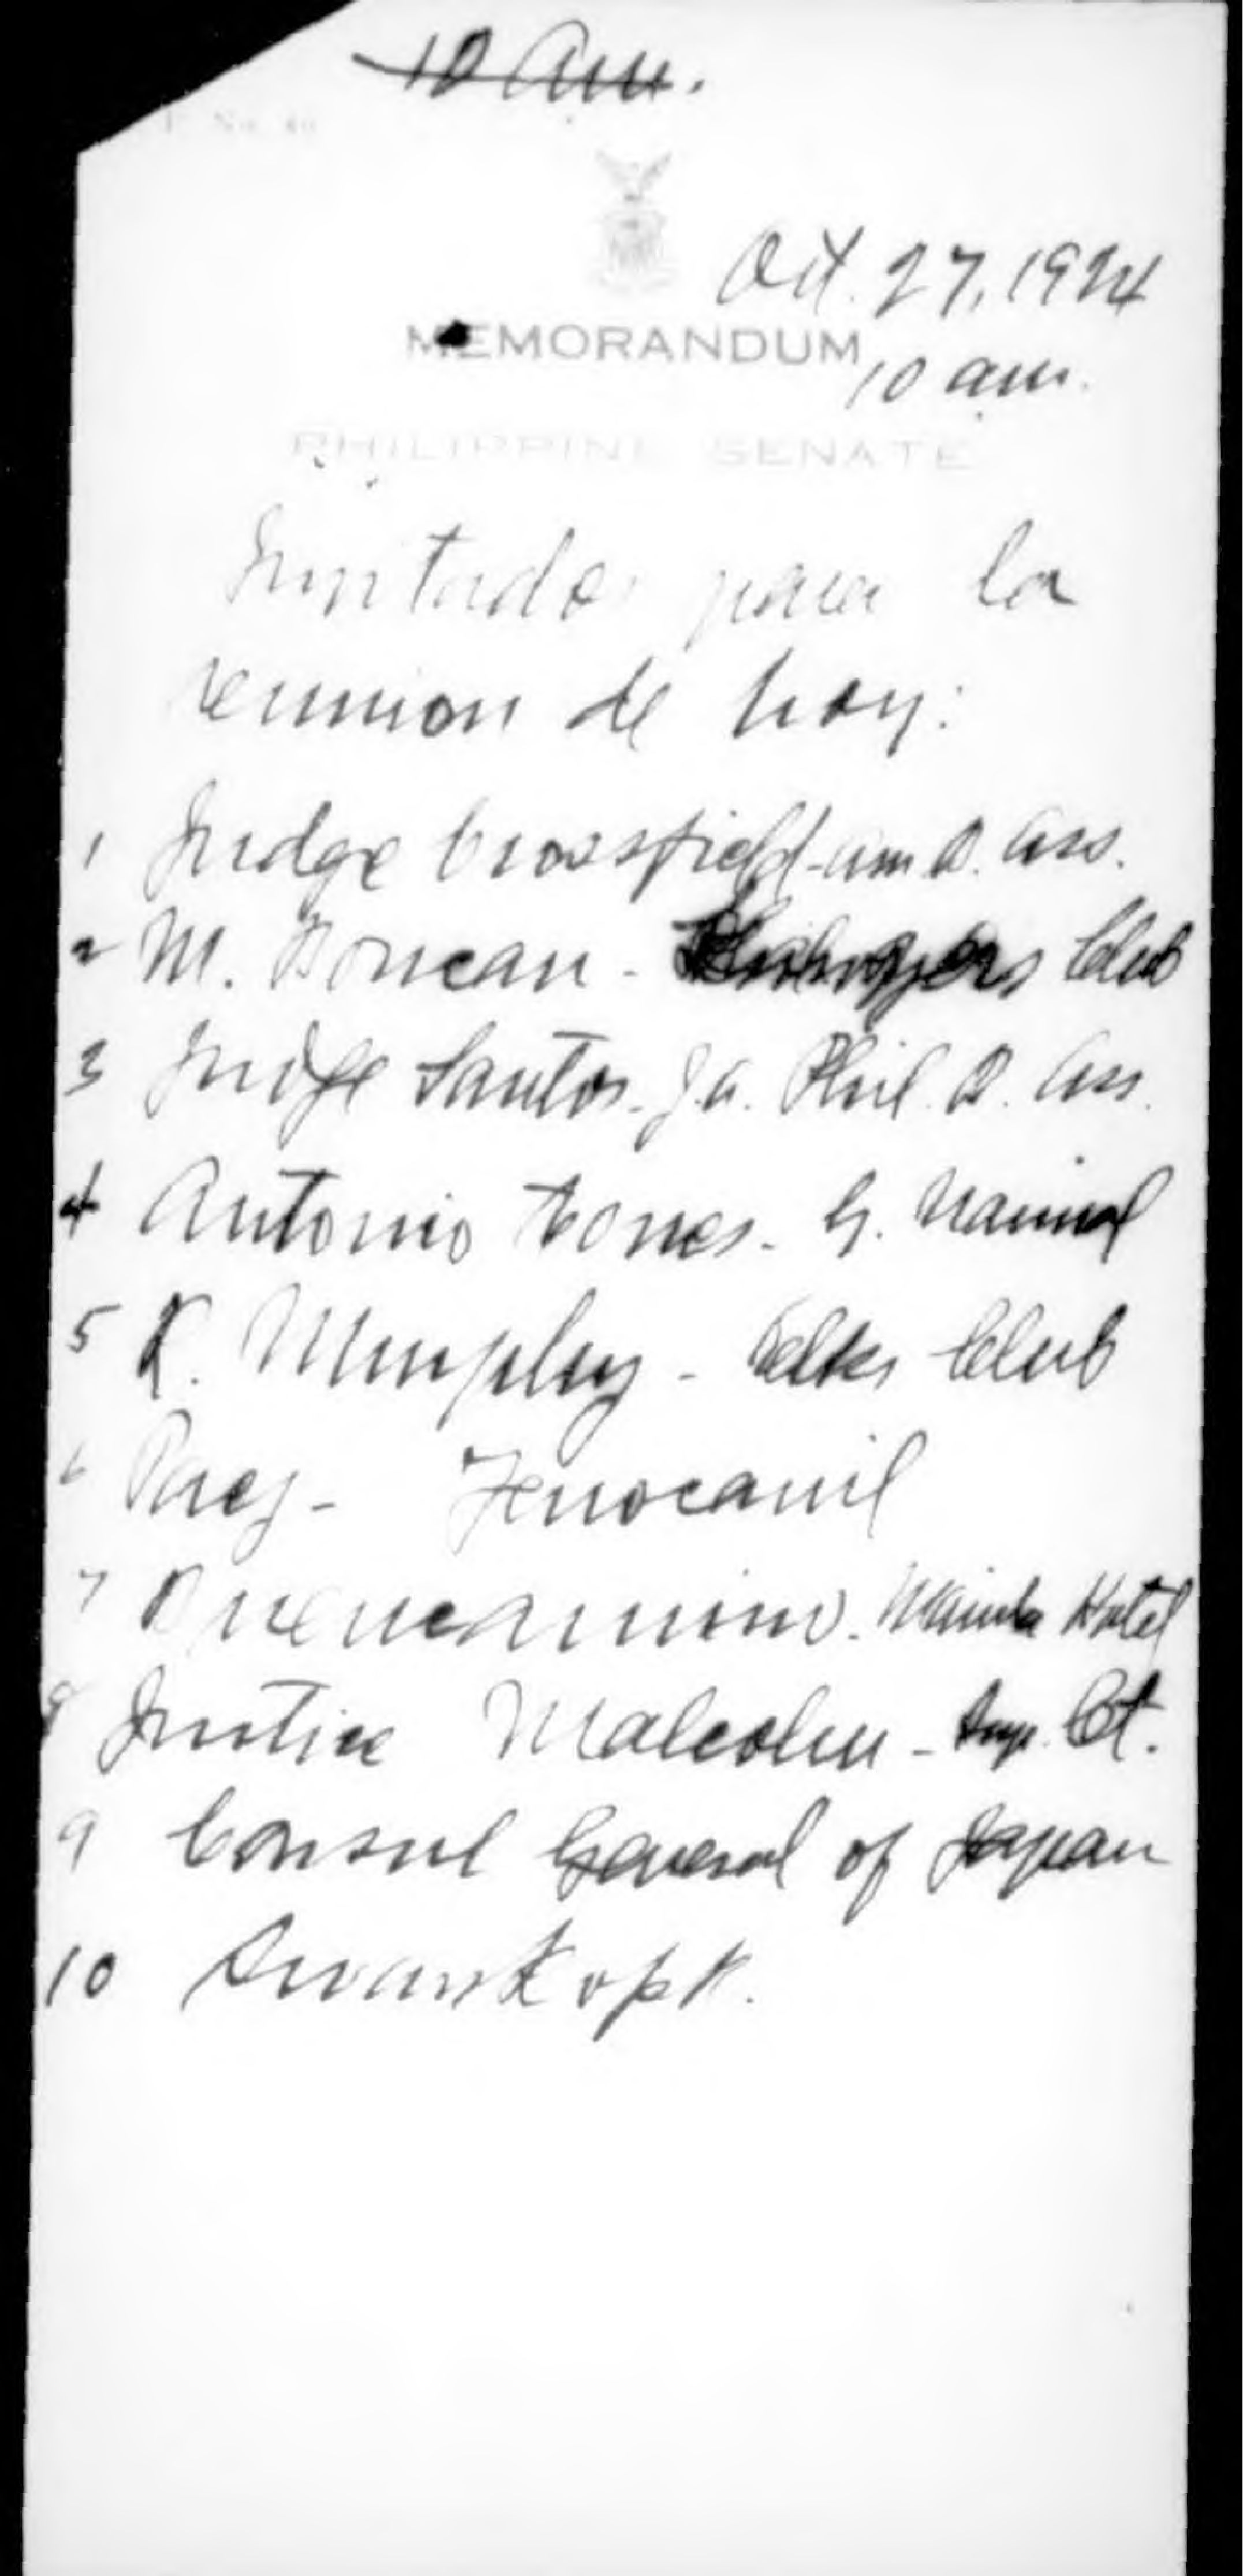 10 am.
Oct. 27, 1924
MEMORANDUM
10 am.
PHILIPPINE SENATE
Invitados para la
reunion de hoy:
1 Judge Crossfield - Am. B. Ass.
2 M. - Club
3 Judge Santos - J.A. Phil. B. Ass.
4 Antonio Torres -
5 K. Murphy - Elks Club
6 Paez - Ferrocarril
7 Buencamino. Manila Hotel
8 Justice Malcolm - Sup. Ct.
9 Consul General of Japan
10